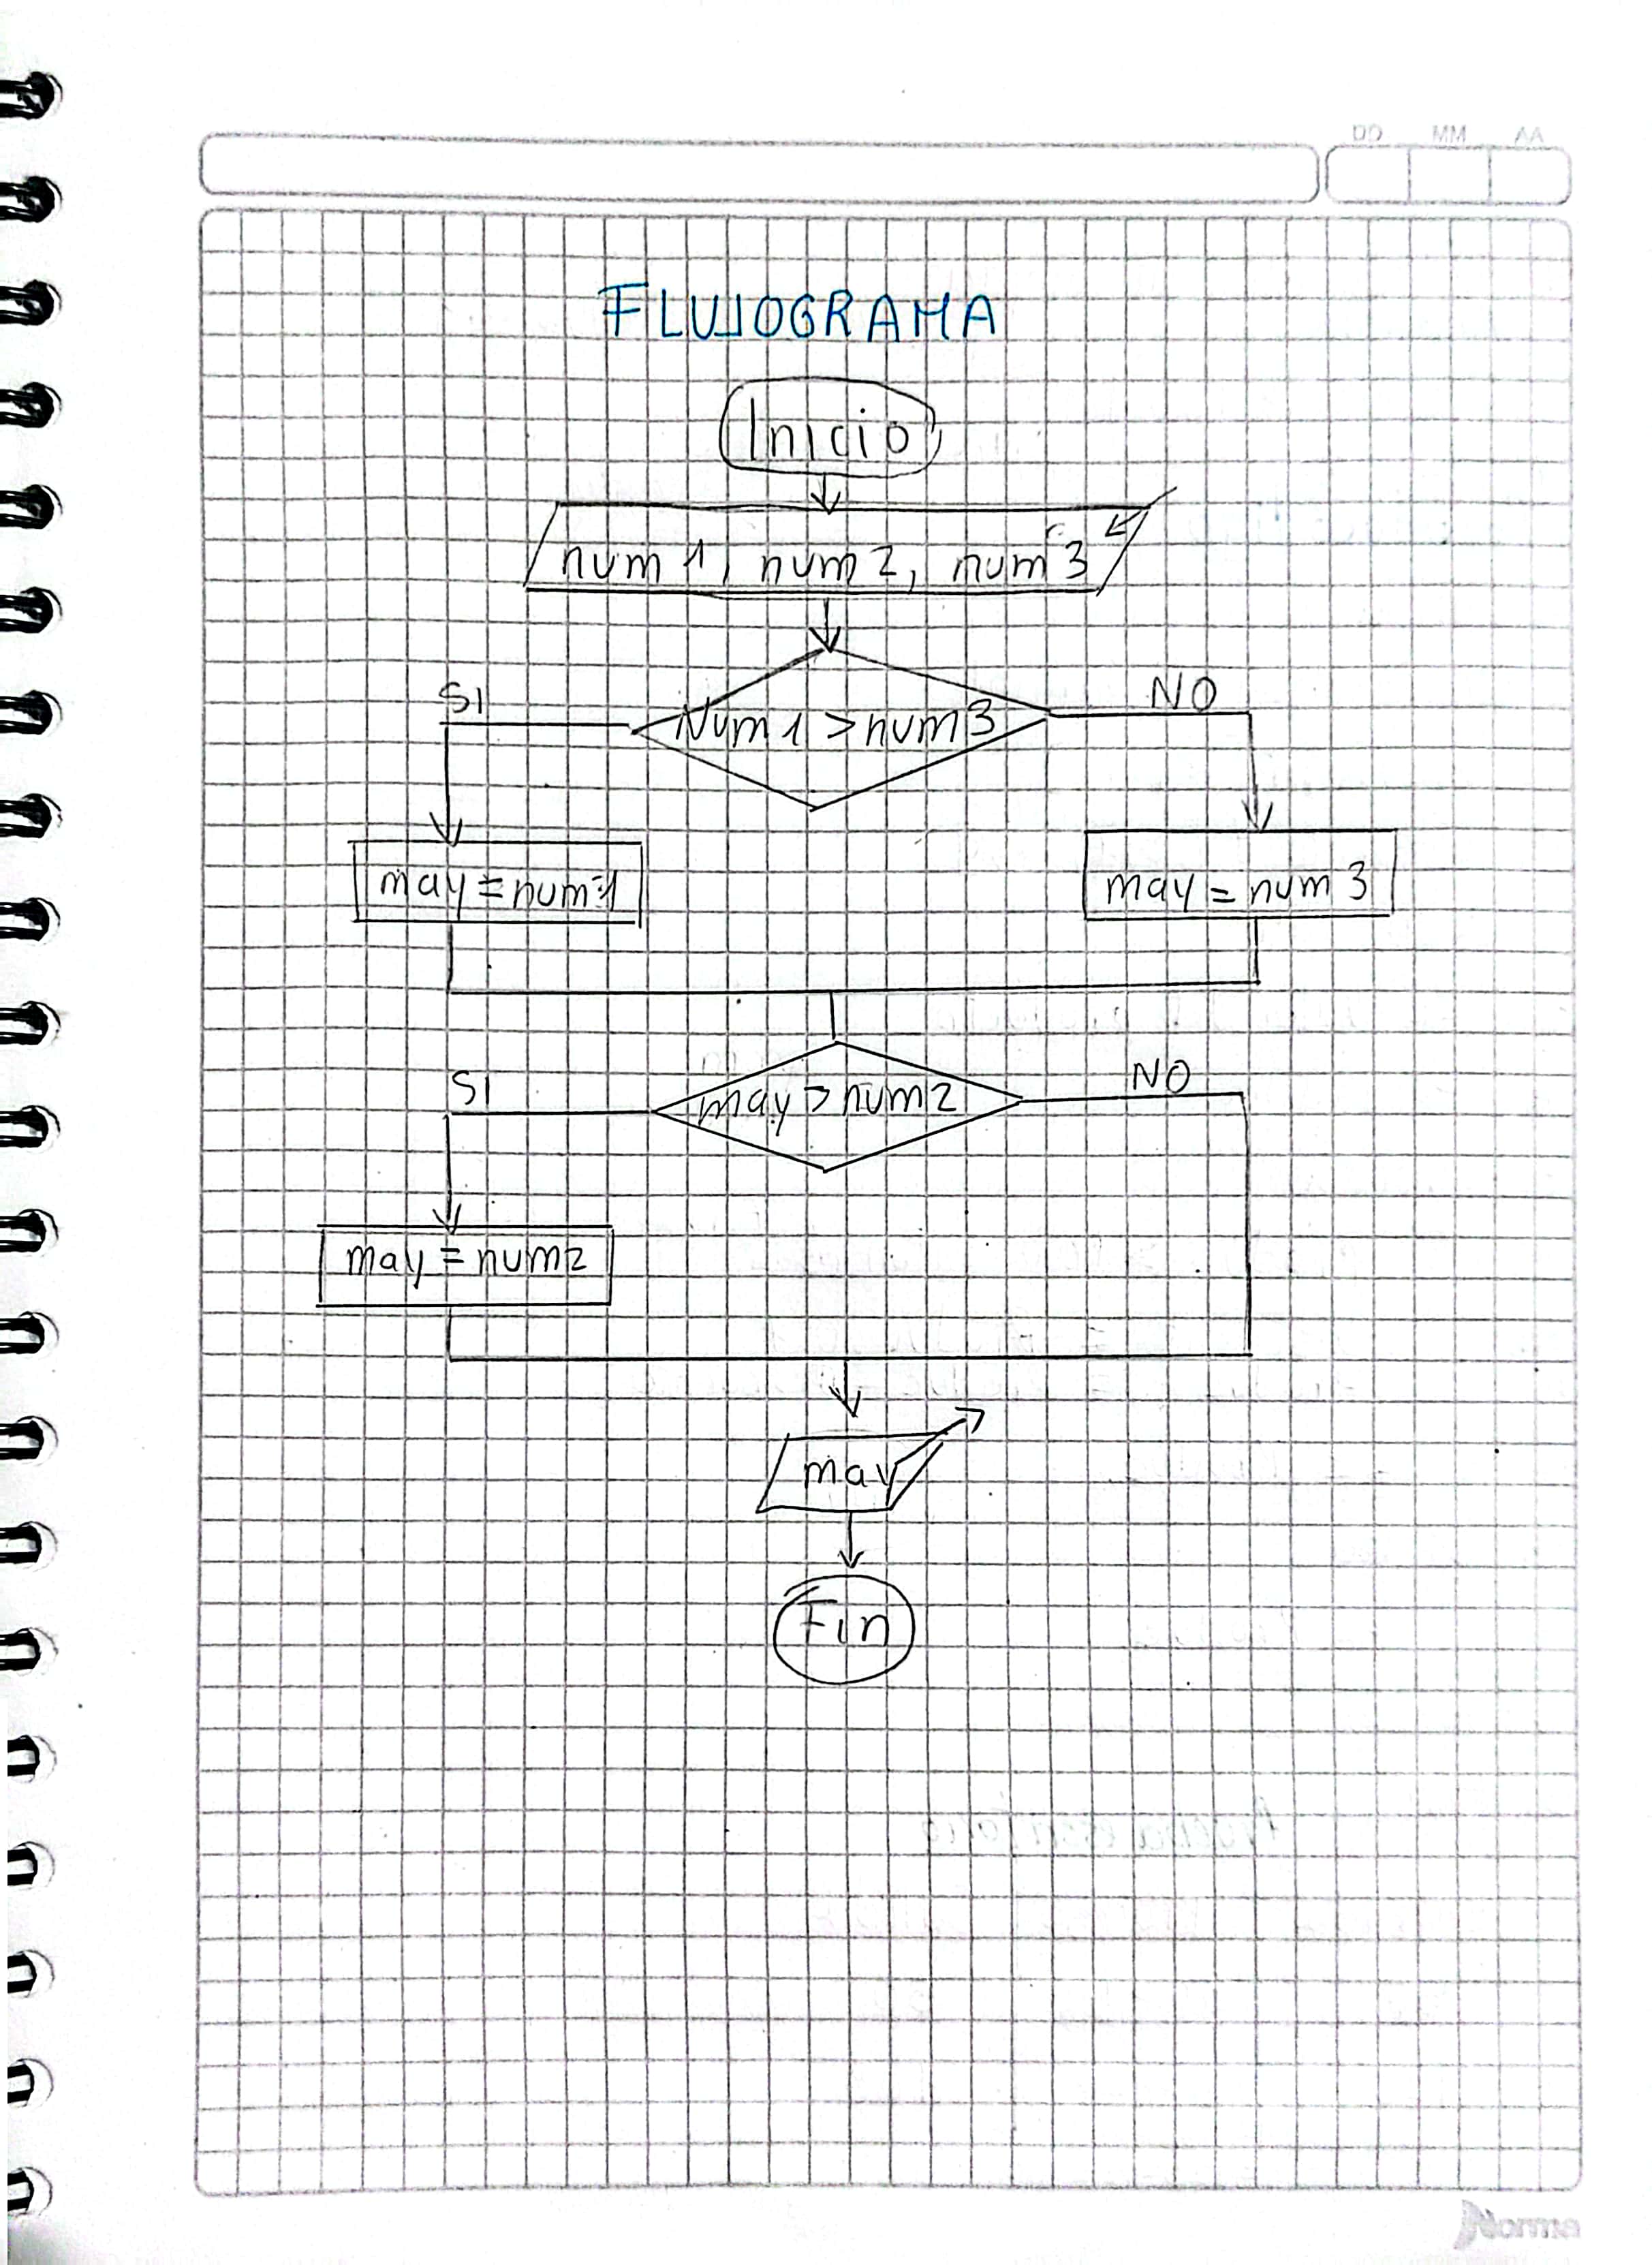 FLUJOGRAMA
Inicio
num 1, num 2, num 3
SI
Num 1 > num 3
NO
may = num 1
may = num 3
SI
may > num 2
NO
may = num 2
may
Fin